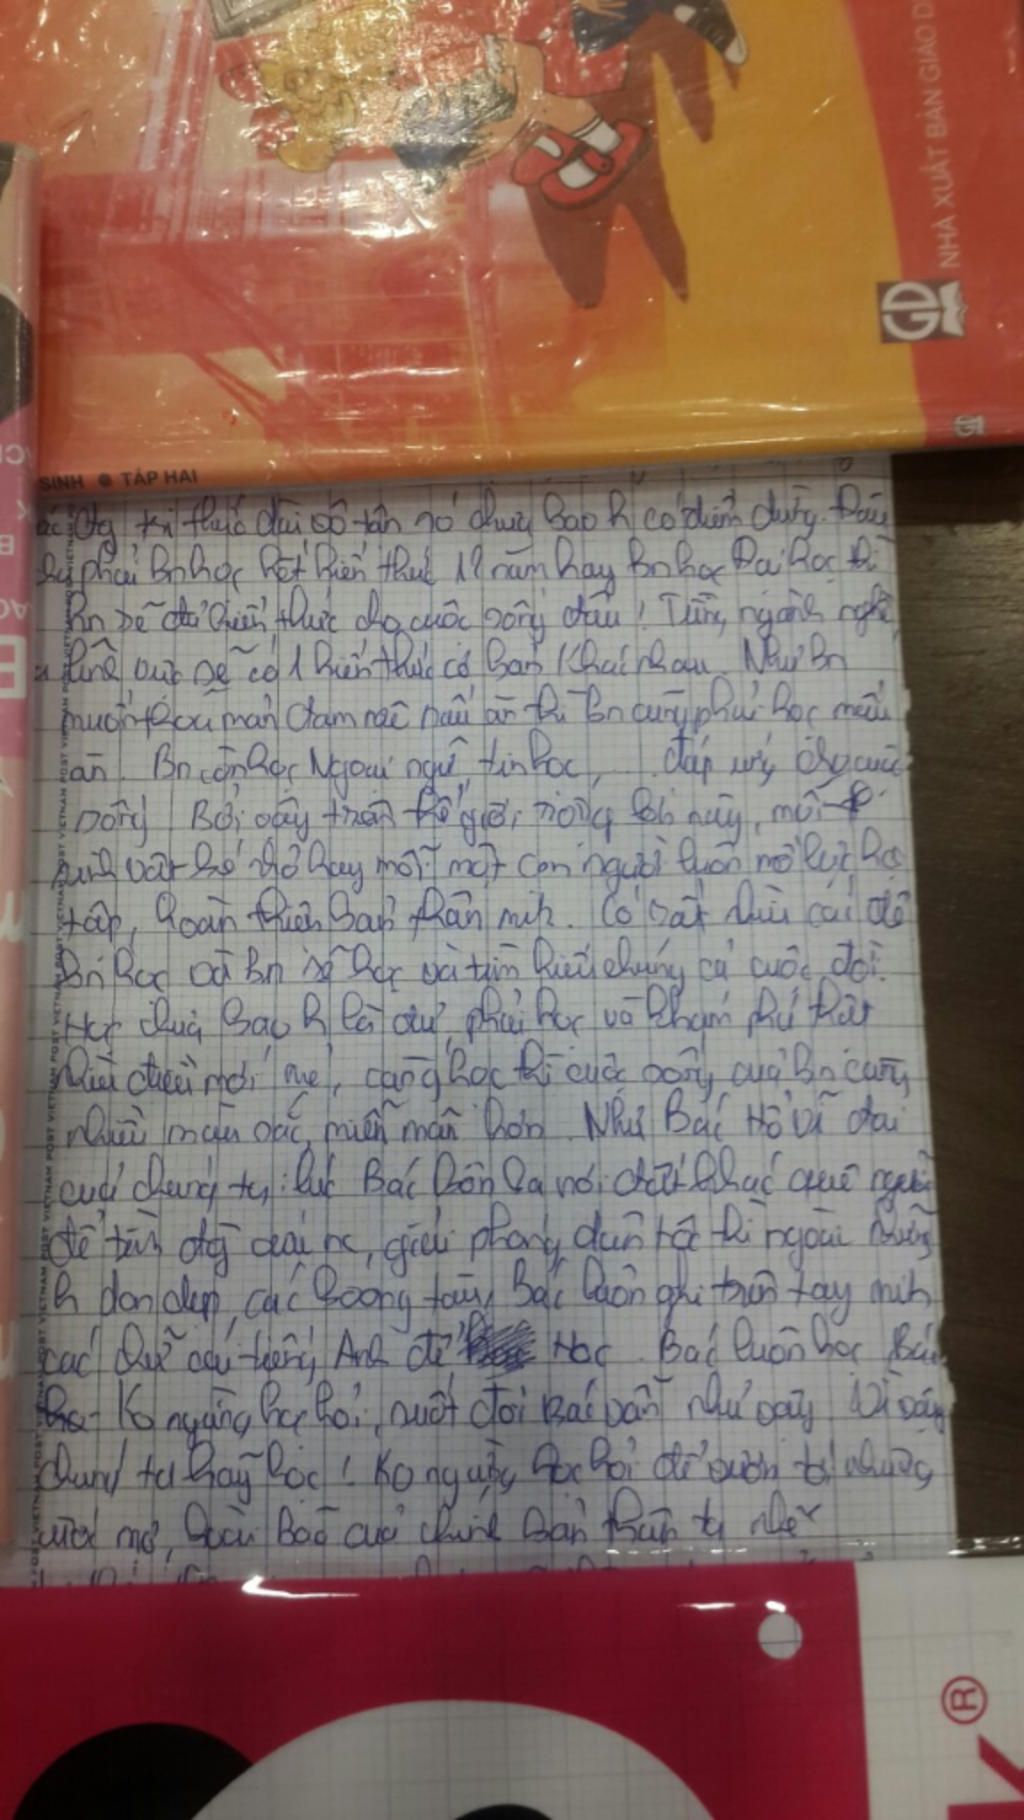 NHÀ XUẤT BẢN GIÁO D
GD
SINH ● TẬP HAI
tri thức dài vô tận nó chưa bao h có điểm dừng. Đâu
phải Bn học hết kiến thức 12 năm hay Bn học Đại học thì
Bn sẽ đủ kiến thức cho cuộc sống đâu! Từng ngành nghề,
lĩnh vực sẽ có 1 kiến thức cơ bản khác nhau. Như Bn
muốn thỏa mãn đam mê nấu ăn thì Bn cũng phải học nấu
ăn. Bn cần học Ngoại ngữ, tin học, đáp ứng cho cuộc
sống! Bởi vậy trên thế giới rộng lớn này, mỗi
sinh vật bé nhỏ hay mỗi một con người luôn nỗ lực học
tập, hoàn thiện bản thân mìh. Có rất nhìu cái để
Bn học và Bn sẽ học và tìm hiểu chúng cả cuộc đời.
Học chưa bao h là đủ, phải học và khám phá thật
nhìu điều mới mẻ, càng học thì cuộc sống của Bn càng
nhiều màu sắc, miễn mãn hơn. Như Bác Hồ vĩ đại
của chúng ta, lúc Bác bôn ba nơi đất khác quê người
để tìm đg cứu nc, giải phóng dân tộc thì ngoài những
h dọn dẹp các boong tàu, Bác luôn ghi trên tay mìh
các chữ cái tiếng Anh để Học. Bác luôn học
Ko ngừng học hỏi, suốt đời Bác vẫn như vậy. Vì vậy
chúng ta hãy học! Ko ngừng học hỏi để vươn tới những
ước mơ, hoài bão của chính bản thân ta nhé
VIETNAM POST VIETNAM POST VIETNAM POST
®
K